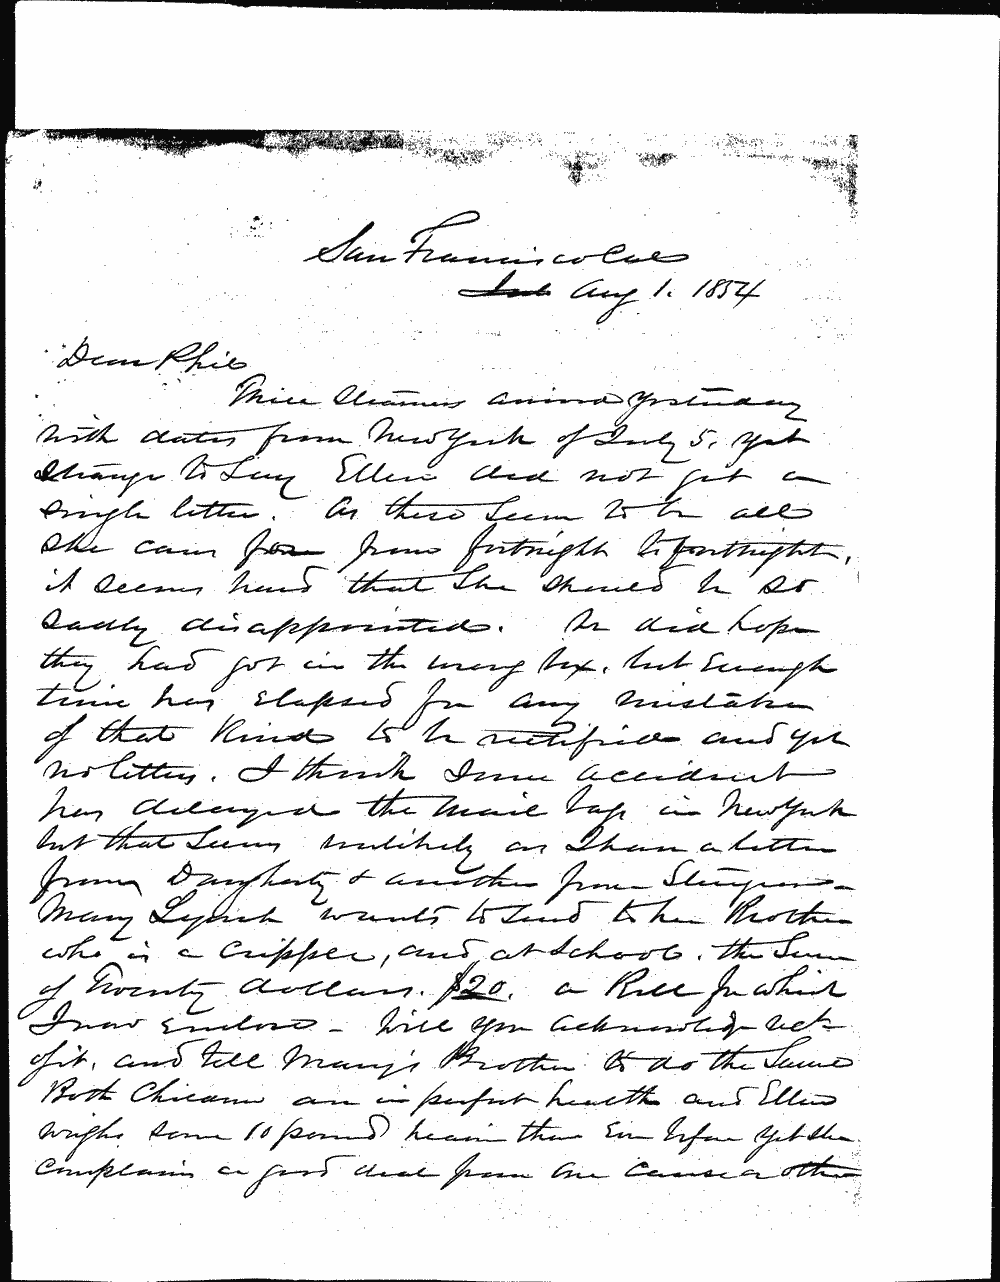 San Francisco Cal
Aug 1. 1854
Dear Phil
Three Steamers arrived yesterday
with dates from New York of July 5, yet
strange to Say Ellen did not get a
single letter. As these seem to be all
she cares for from fortnight to fortnight,
it seems hard that She should be so
sadly disappointed. We did hope
they had got in the wrong box, but Enough
time has elapsed for any mistake
of that kind to be rectified and yet
no letters. I think Some accident
has delayed the mail bags in New York
but that Seems unlikely as I have a letter
from Daugherty & another from
Mary Lynch wants to Send to her Brother
who is a cripple, and at School. the Sum
of Twenty dollars. $20. a Bill for which
I now enclose - Will you acknowledge rect
of it, and tell Mary's Brother to do the Same
Both Children are in perfect health and Ellen
weighs some 10 pounds heavier than Ever before yet she
complains a good deal from one cause or other